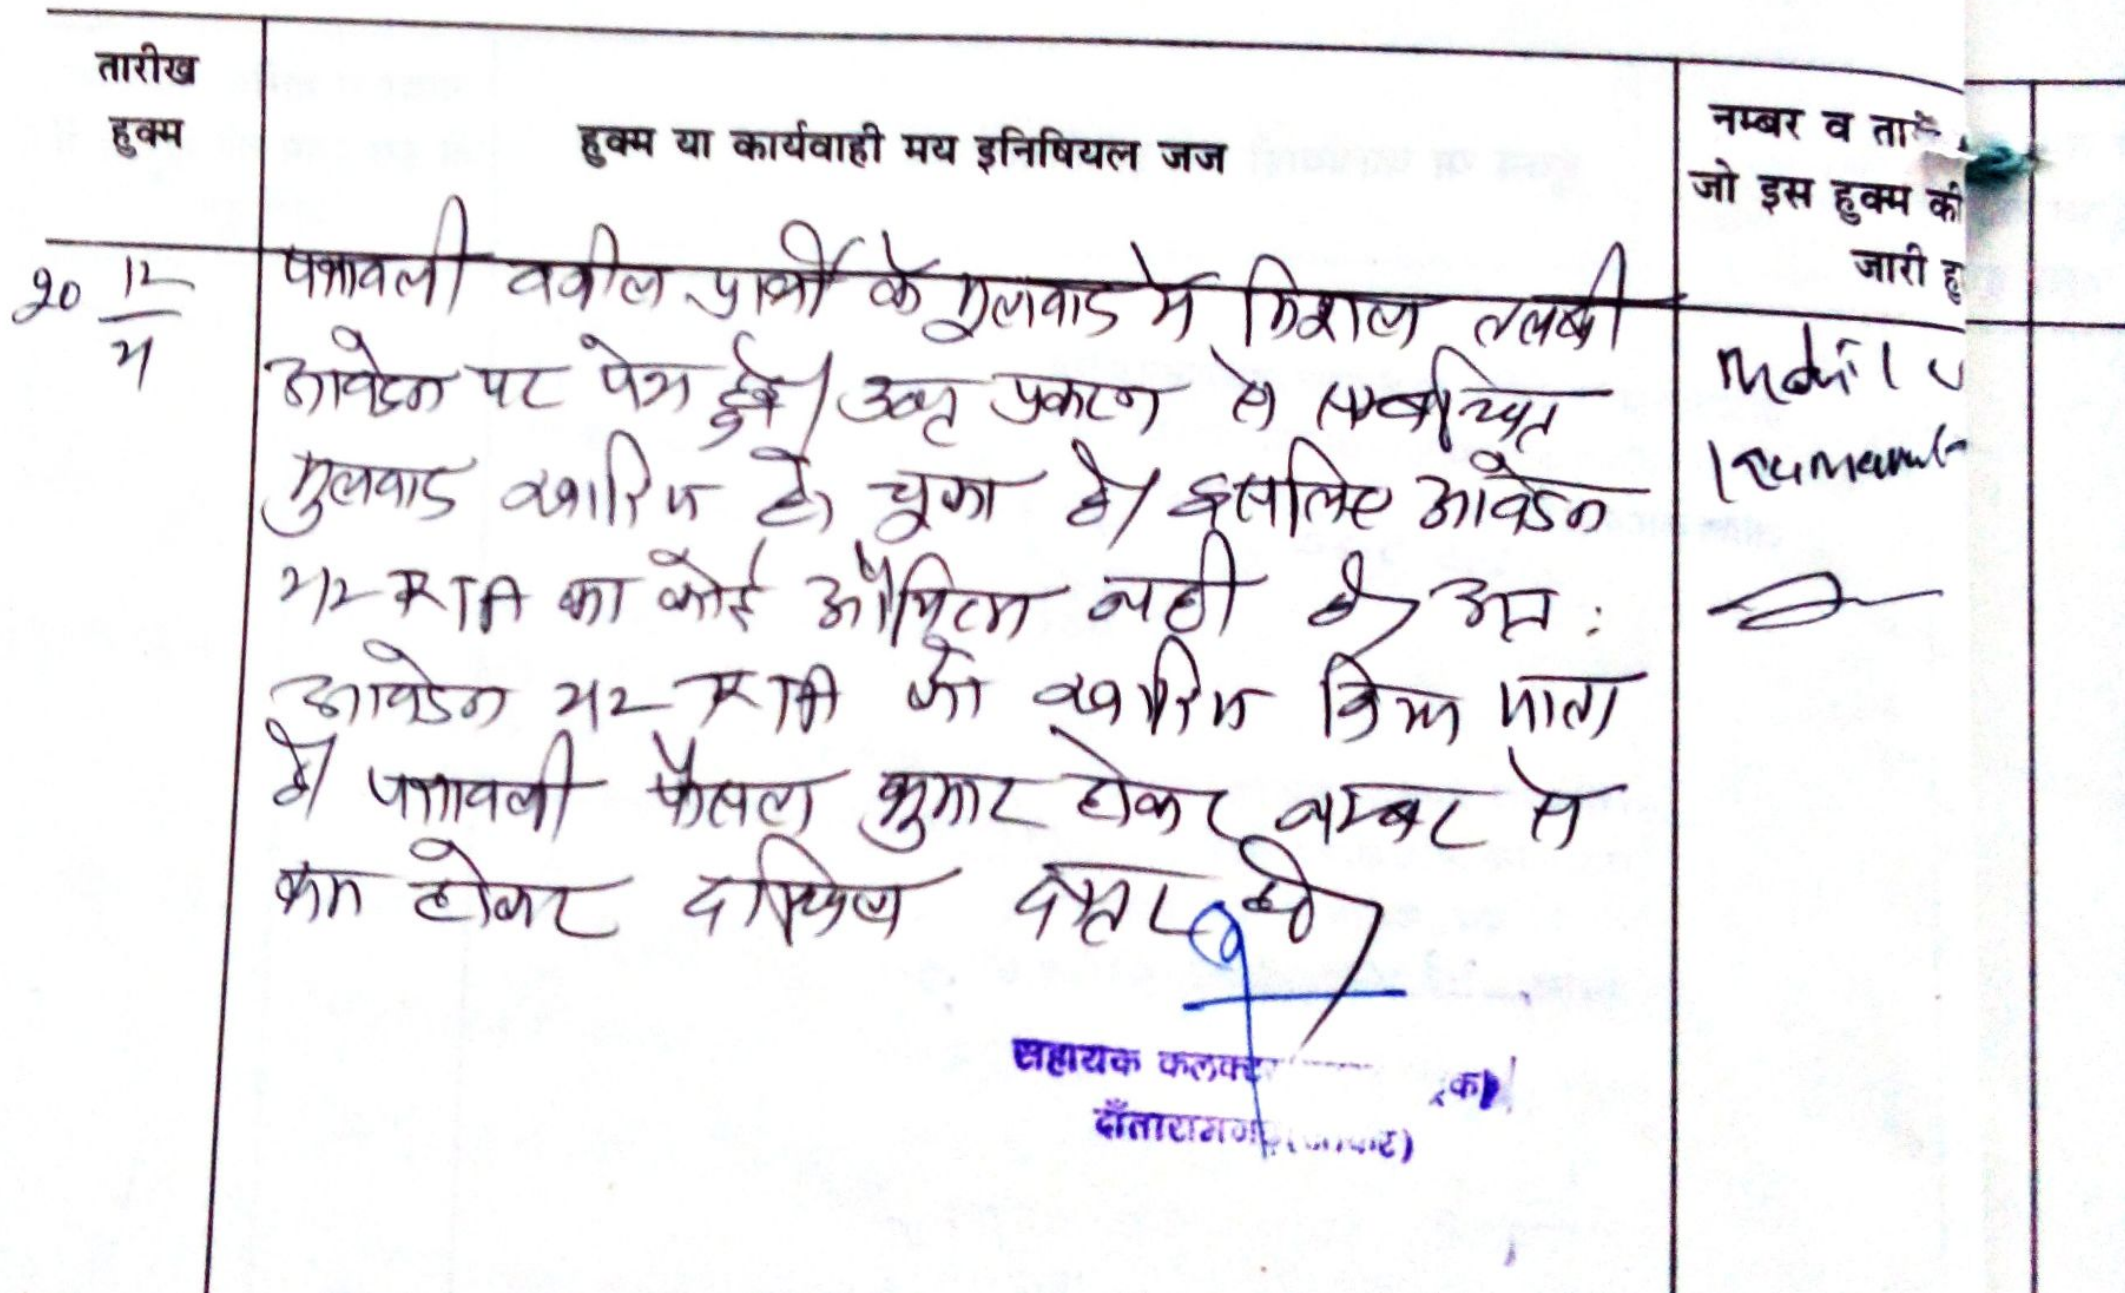 तारीख
हुक्म
हुक्म या कार्यवाही मय इनिषियल जज
नम्बर व ता
जो इस हुक्म की
जारी हु
20 12
पत्रावली वकील प्रार्थी के मुलवाद में मिशल तलबी
आवेदन पर पेश हुई। उक्त प्रकरण से सम्बन्धित
मुलवाद खारिज हो चुका है। इसलिए आवेदन
212 RTA का कोई औचित्य नही है। अत:
आवेदन 212 RTA को खारिज किया जाता
है। पत्रावली फैसल शुमार होकर नम्बर से
कम होकर दाखिल दफ्तर हो।
सहायक कलक्टर
दाँतारामगढ़